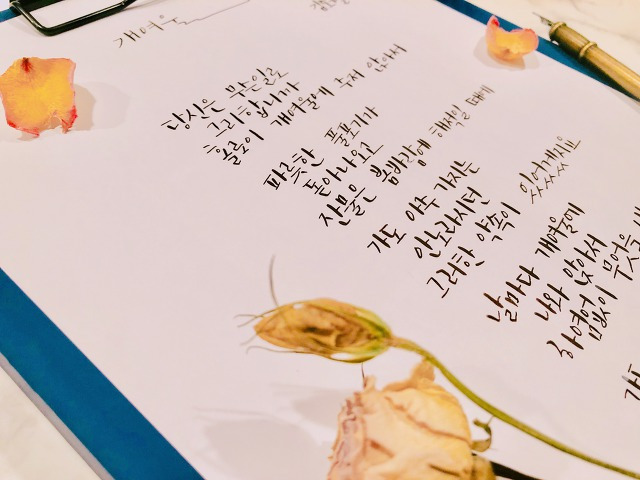 개여울
당신은 무슨일로
그리합니까
홀로이 개여울에 주저 앉아서
파릇한 풀포기가
돋아나오고
잔물은 봄바람에 해적일 때에
가도 아주 가지는
안노라시던
그러한 약속이 있었겠지요
날마다 개여울에
나와 앉아서
하염없이 무엇을